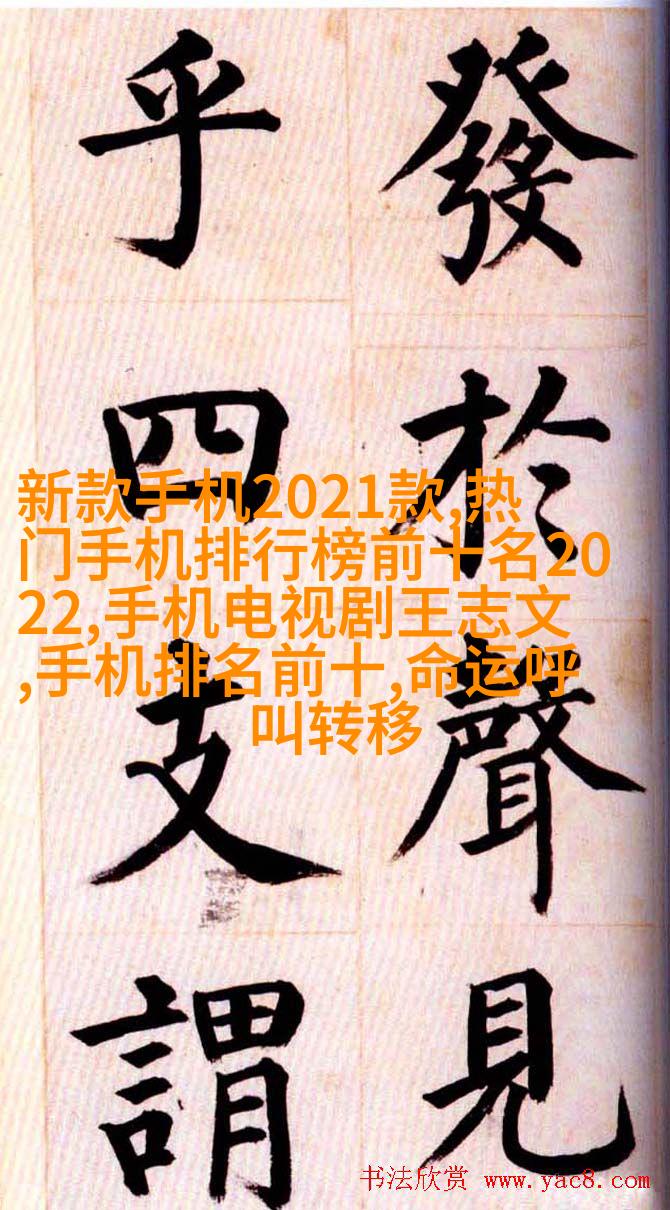 發於聲見
乎四支謂
新款手机2021款,热
门手机排行榜前十名20
22,手机电视剧王志文
,手机排名前十,命运呼
叫转移
书法欣赏 www.yac8.com